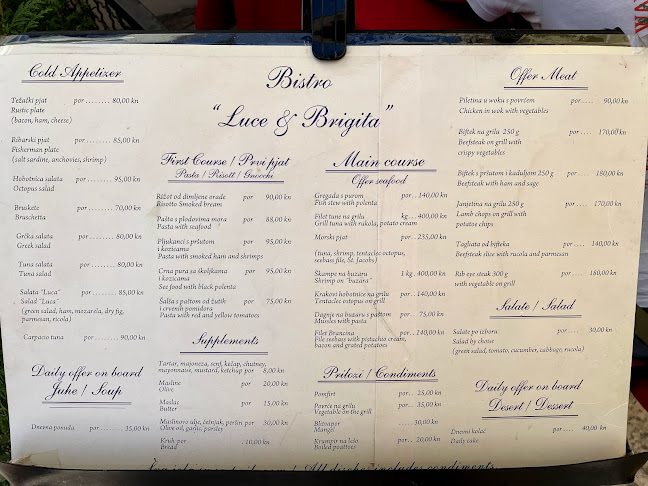 Bistro
"Luce & Brigita"
Cold Appetizer
Težački pjat por ........ 80,00 kn
Rustic plate
(bacon, ham, cheese)
Ribarski pjat por ........ 85,00 kn
Fisherman plate
(salt sardine, anchovies, shrimp)
Hobotnica salata por ........ 95,00 kn
Octopus salad
Bruskete por ........ 70,00 kn
Bruschetta
Grčka salata por ........ 80,00 kn
Greek salad
Tuna salata por ........ 80,00 kn
Tuna salad
Salata "Luca" por ........ 85,00 kn
Salad "Luca"
(green salad, ham, mozarela, dry fig,
parmesan, ricola)
Carpaco tuna 90,00 kn
Daily offer on board
Juhe / Soup
Dnevna ponuda por ........ 35,00 kn
First Course / Prvi pjat
Pasta / Risott / Gnocchi
Rižot od dimljene orade por 90,00 kn
Risotto Smoked bream
Pašta s plodovima mora por 88,00 kn
Pasta with seafood
Pljukanci s pršutom por 95,00 kn
i kozicama
Pasta with smoked ham and shrimps
Crna pura sa školjkama por 95,00 kn
i kozicama
See food with black polenta
Šalša s paštom od žutih por 75,00 kn
i crvenih pomidora
Pasta with red and yellow tomatoes
Supplements
Tartar, majoneza, senf, kečap, chutney,
mayonnaise, mustard, ketchup por 8,00 kn
Masline por 20,00 kn
Olive
Maslac por 15,00 kn
Butter
Maslinovo ulje, češnjak, peršin por 30,00 kn
Olive oil, garlic, parsley
Kruh por . 10,00 kn
Bread
Main course
Offer seafood
Gregada s purom por . . 140,00 kn
Fish stew with polenta
Filet tune na grilu kg... 400,00 kn
Grill tuna with rukola, potato cream
Morski pjat por... 235,00 kn
(tuna, shrimp, tentacles octopus,
seebass file, St. Jacobs)
Škampe na buzaru 1 kg . 400,00 kn
Shrimp on "buzara"
Krakovi hobotnice na grilu por . . 140,00 kn
Tentacles octopus on grill
Dagnje na buzaru s paštom por ... 75,00 kn
Mussles with pasta
Filet Brancina por . . 140,00 kn
File seebass with pistachio cream,
bacon and grated potatoes
Prilozi / Condiments
Pomfrit por ... 25,00 kn
Povrće na grilu por ... 35,00 kn
Vegetable on the grill
Blitvapor ..... 30,00 kn
Mangli
Krumpir na lešo por... 20,00 kn
Boiled potatoes
Offer Meat
Piletina u woku s povrćem por..... 90,00 kn
Chicken in wok with vegetables
Biftek na grilu 250 g por .... 170,00 kn
Beefsteak on grill with
crispy vegetables
Biftek s pršutom i kaduljom 250 g por .... 180,00 kn
Beefsteak with ham and sage
Janjetina na grilu 250 g por .... 170,00 kn
Lamb chops on grill with
potatoe chips
Tagliata od bifteka por .... 140,00 kn
Beefsteak slice with rucola and parmesan
Rib eye steak 300 g por .... 180,00 kn
with vegetable on grill
Salate / Salad
Salate po izboru por ..... 30,00 kn
Salad by choise
(green salad, tomato, cucumber, cabbage, rucola)
Daily offer on board
Desert / Dessert
Dnevni kolač por .... 40,00 kn
Daily cake
/ All dishes includes condiments